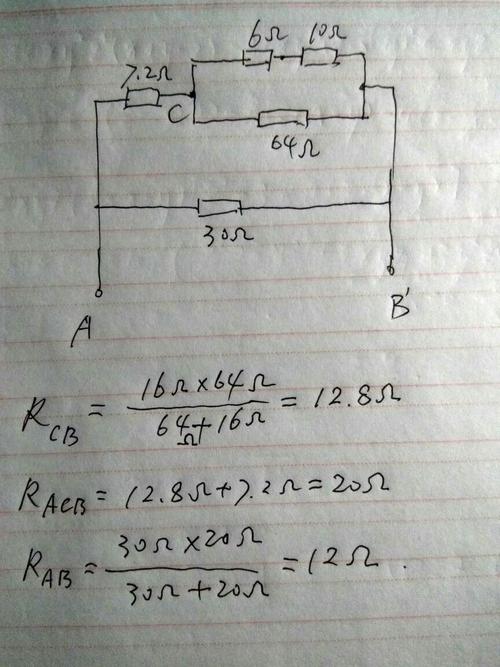 6Ω 10Ω
7.2Ω
C
64Ω
30Ω
A B'
R_CB = 16Ω×64Ω / 64Ω+16Ω = 12.8Ω
R_ACB = 12.8Ω+7.2Ω=20Ω
R_AB = 30Ω×20Ω / 30Ω+20Ω = 12Ω.